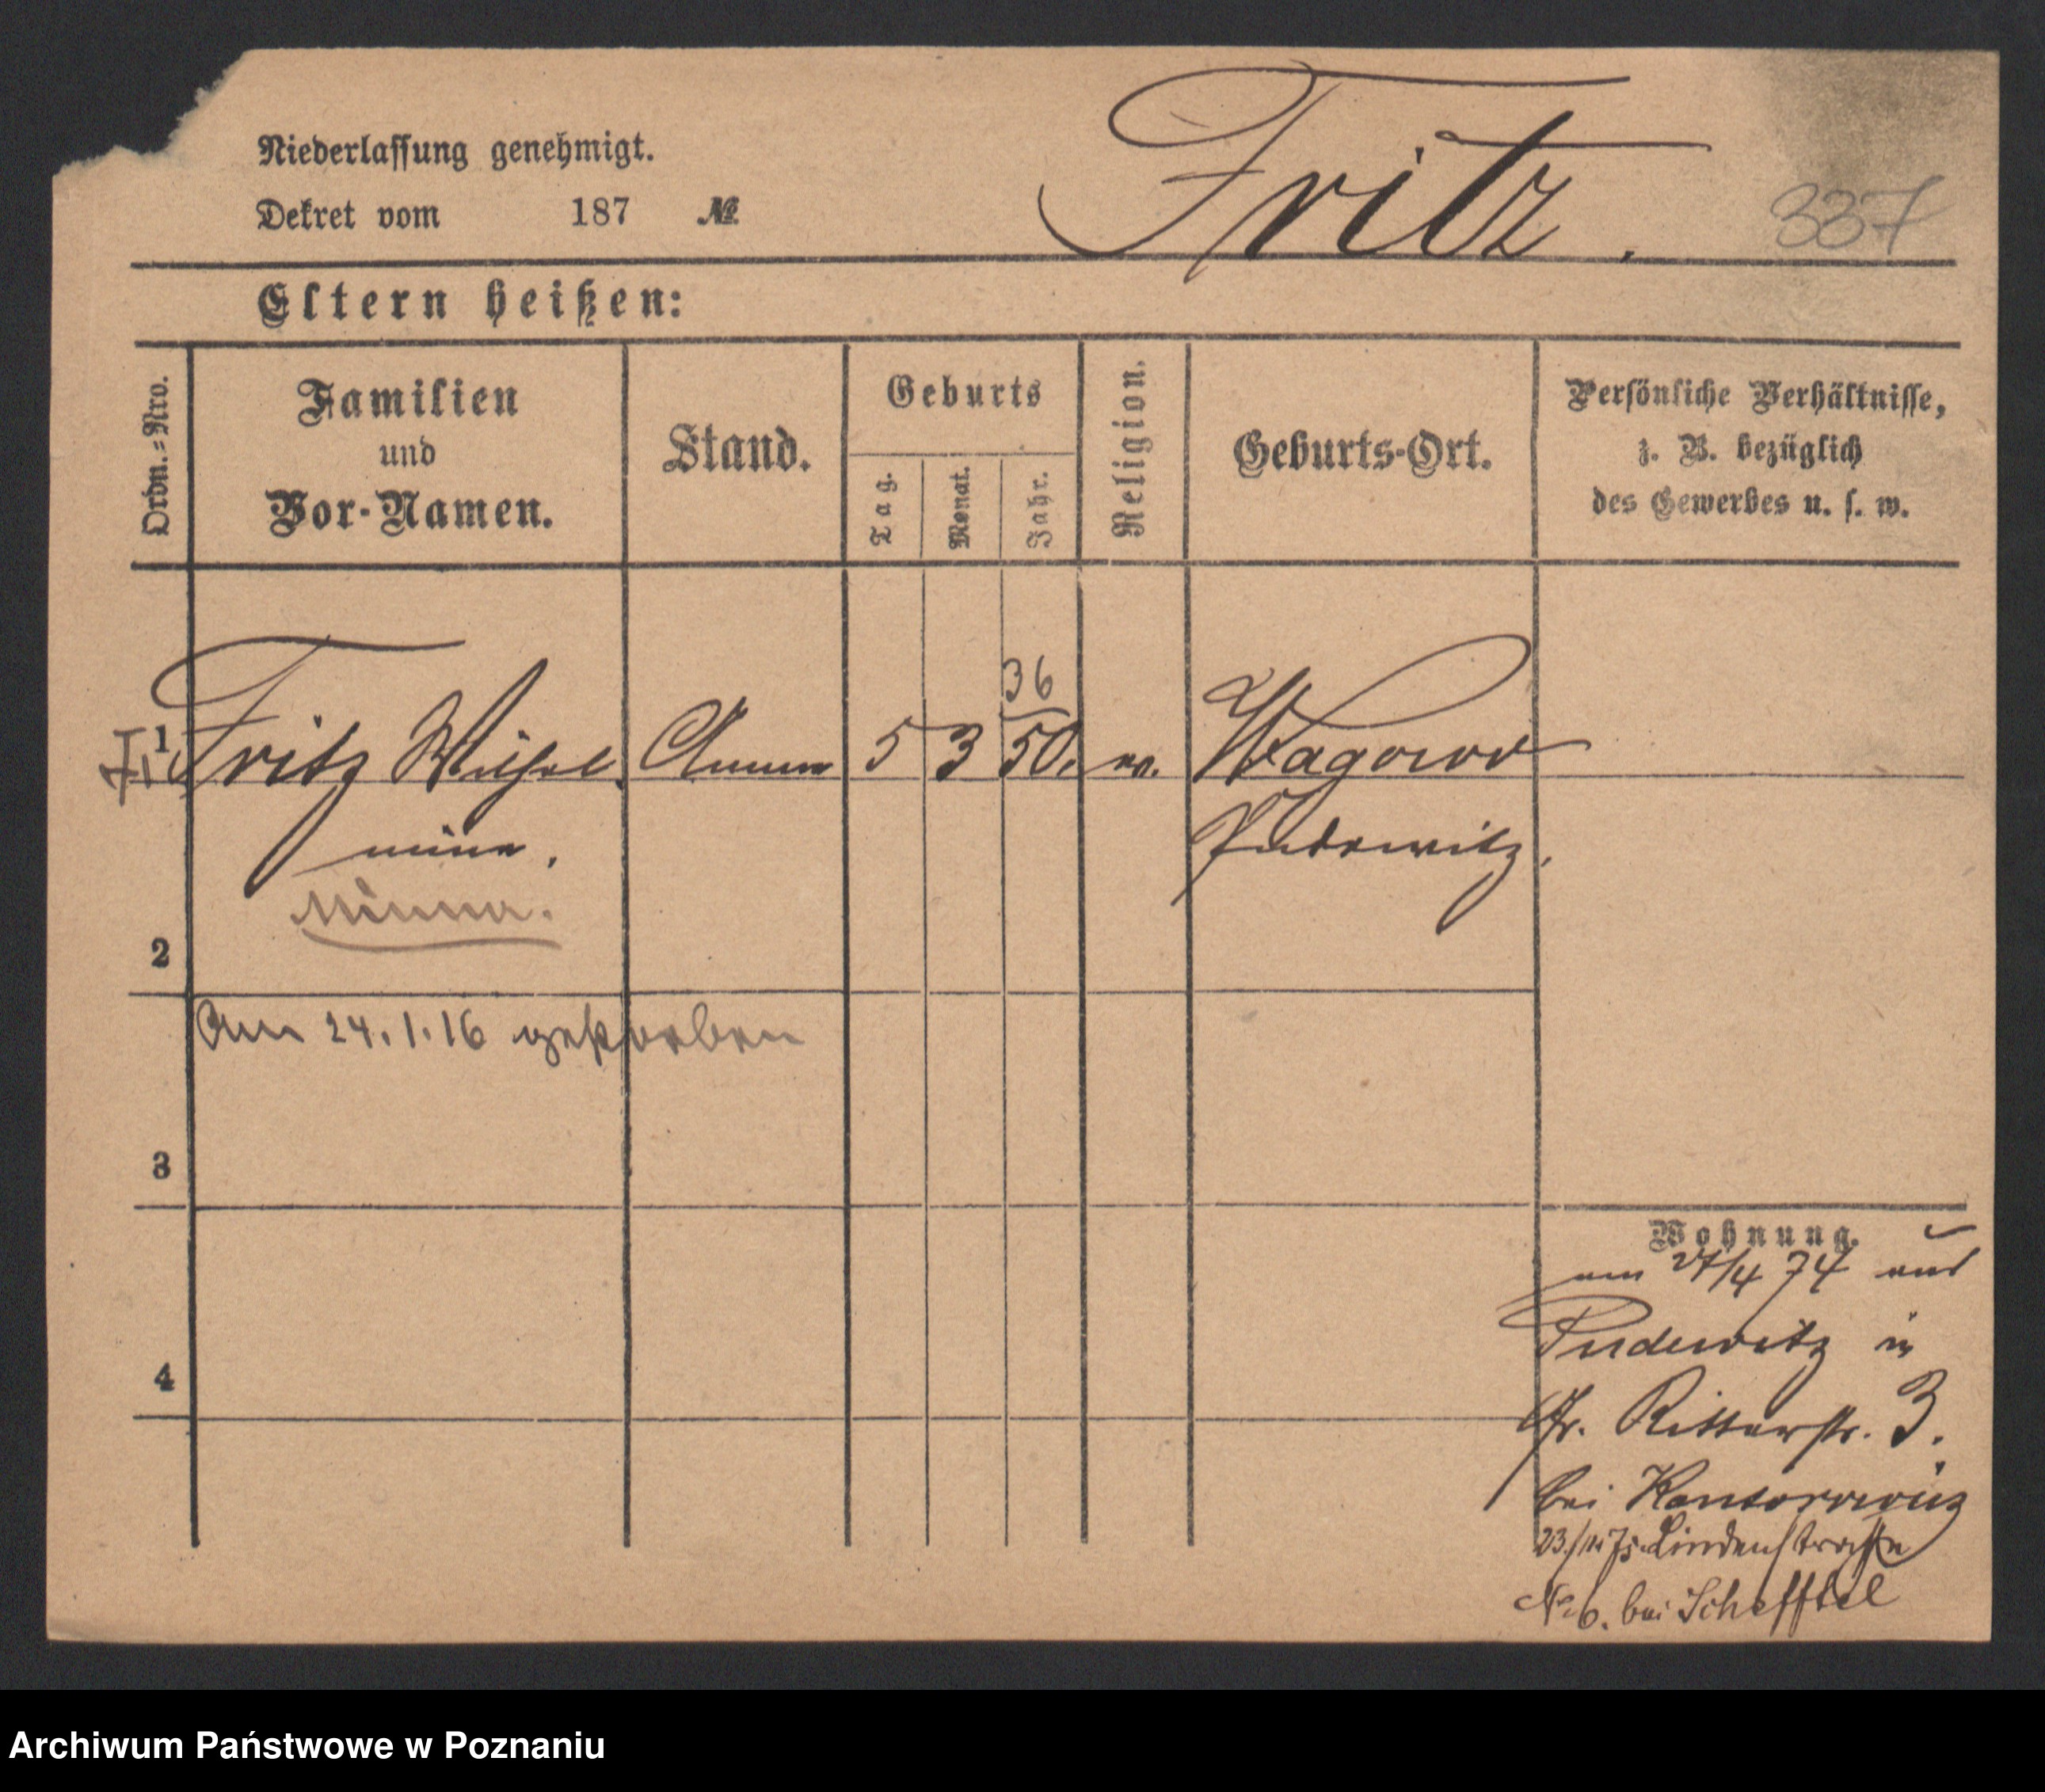 Niederlassung genehmigt.
Dekret vom 187 №
Fritz.
337
Eltern heißen:
Ordn.=Nro.
Familien
und
Vor-Namen.
Stand.
Geburts
Tag.
Monat.
Jahr.
Religion.
Geburts-Ort.
Persönliche Verhältnisse,
z. B. bezüglich
des Gewerbes u. s. w.
36
1 Fritz Wilhel Amme 5 3 50. ev. Wagowo
mine. Pudewitz.
Minna.
2
Am 24.1.16 gestorben
3
Wohnung.
am 27/4 74 aus
Pudewitz in
4
Gr. Ritterstr. 3.
bei Kantorowicz
23./11 75 Lindenstrasse
No 6. bei Schefftel
Archiwum Państwowe w Poznaniu